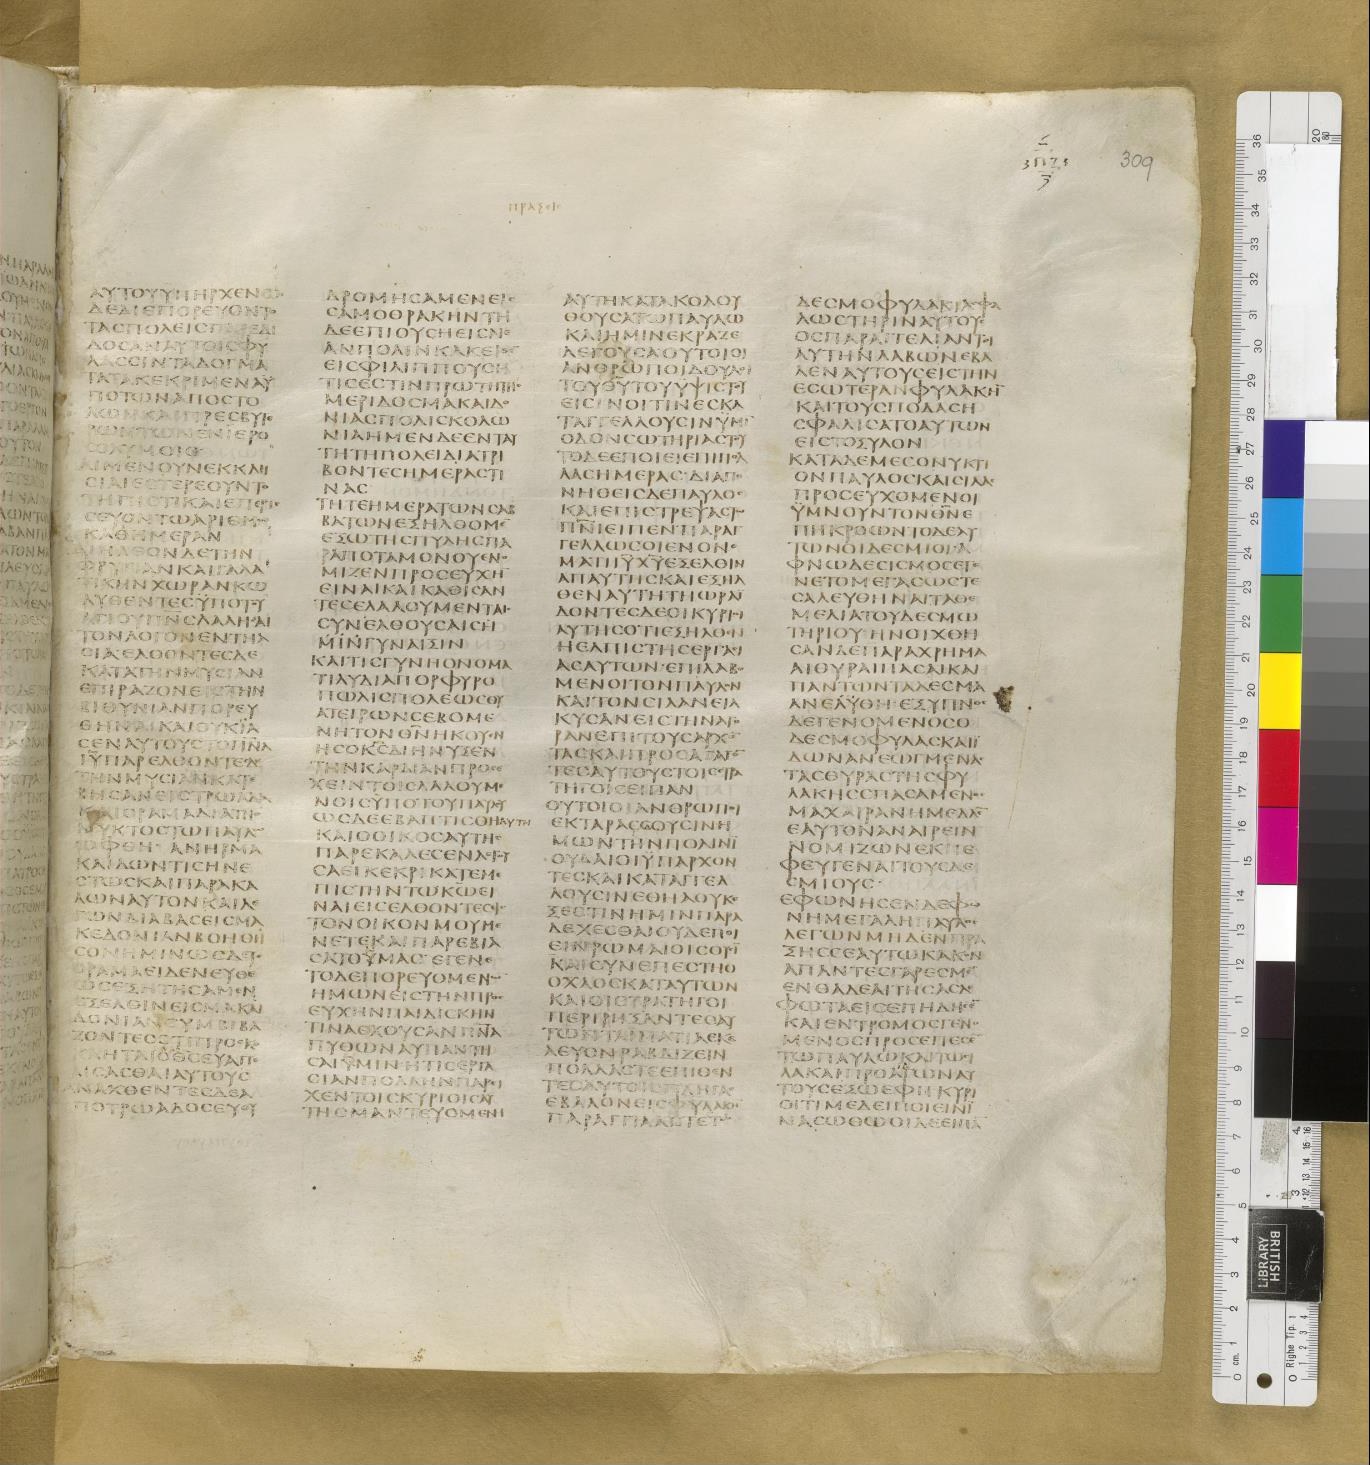 309
ΠΡΑΞΕΙϹ
ΑΥΤΟΥΥΠΗΡΧΕΝ
ΔΕΔΙΕΠΟΡΕΥΟΝΤΟ
ΤΑϹΠΟΛΕΙϹ
ΔΟϹΑΝΑΥΤΟΙϹΦΥ
ΛΑϹϹΙΝΤΑΔΟΓΜΑ
ΤΑΤΑΚΕΚΡΙΜΕΝΑΫ
ΠΟΤΩΝΑΠΟϹΤΟ
ΛΩΝΚΑΙΠΡΕϹΒΥΤΕ
ΡΩΝΤΩΝΕΝΙΕΡΟ
ϹΟΛΥΜΟΙϹ
ΑΙΜΕΝΟΥΝΕΚΚΛΗ
ϹΙΑΙΕϹΤΕΡΕΟΥΝΤΟ
ΤΗΠΙϹΤΙΚΑΙΕΠΕΡΙϹ
ϹΕΥΟΝΤΩΑΡΙΘΜΩ
ΚΑΘΗΜΕΡΑΝ
ΔΙΗΛΘΟΝΔΕΤΗΝ
ΦΡΥΓΙΑΝΚΑΙΓΑΛΑ
ΤΙΚΗΝΧΩΡΑΝΚΩ
ΛΥΘΕΝΤΕϹΫΠΟΤΟΥ
ΑΓΙΟΥΠΝϹΛΑΛΗϹΑΙ
ΤΟΝΛΟΓΟΝΕΝΤΗΑ
ϹΙΑΕΛΘΟΝΤΕϹΔΕ
ΚΑΤΑΤΗΝΜΥϹΙΑΝ
ΕΠΙΡΑΖΟΝΕΙϹΤΗΝ
ΒΙΘΥΝΙΑΝΠΟΡΕΥ
ΘΗΝΑΙΚΑΙΟΥΚΪΑ
ϹΕΝΑΥΤΟΥϹΤΟΠΝΑ
ΙΥΠΑΡΕΛΘΟΝΤΕϹΔΕ
ΤΗΝΜΥϹΙΑΝΚΑΤΕ
ΒΗϹΑΝΕΙϹΤΡΩΑΔΑ
ΚΑΙΟΡΑΜΑΔΙΑΤΗϹ
ΝΥΚΤΟϹΤΩΠΑΥΛΩ
ΩΦΘΗ·ΑΝΗΡΜΑ
ΚΑΙΔΩΝΤΙϹΗΝΕ
ϹΤΩϹΚΑΙΠΑΡΑΚΑ
ΛΩΝΑΥΤΟΝΚΑΙΛΕ
ΓΩΝΔΙΑΒΑϹΕΙϹΜΑ
ΚΕΔΟΝΙΑΝΒΟΗΘΗ
ϹΟΝΗΜΙΝΩϹΔΕΤΟ
ΟΡΑΜΑΕΙΔΕΝΕΥΘΕ
ΩϹΕΖΗΤΗϹΑΜΕΝ
ΕΞΕΛΘΙΝΕΙϹΜΑΚΑΙ
ΔΟΝΙΑΝϹΥΜΒΙΒΑ
ΖΟΝΤΕϹΟΤΙΠΡΟϹΚΕ
ΚΛΗΤΑΙΟΘϹΕΥΑΓΓΕ
ΛΙϹΑϹΘΑΙΑΥΤΟΥϹ
ΑΝΑΧΘΕΝΤΕϹΔΕΑ
ΠΟΤΡΩΑΔΟϹΕΥΘΥ
ΔΡΟΜΗϹΑΜΕΝΕΙϹ
ϹΑΜΟΘΡΑΚΗΝΤΗ
ΔΕΕΠΙΟΥϹΗΕΙϹΝΕ
ΑΝΠΟΛΙΝΚΑΚΕΙΘΕ
ΕΙϹΦΙΛΙΠΠΟΥϹΗ
ΤΙϹΕϹΤΙΝΠΡΩΤΗΤΗϹ
ΜΕΡΙΔΟϹΜΑΚΑΙΔΟ
ΝΙΑϹΠΟΛΙϹΚΟΛΩ
ΝΙΑΗΜΕΝΔΕΕΝΤΑΥ
ΤΗΤΗΠΟΛΕΙΔΙΑΤΡΙ
ΒΟΝΤΕϹΗΜΕΡΑϹΤΙ
ΝΑϹ
ΤΗΤΕΗΜΕΡΑΤΩΝϹΑΒ
ΒΑΤΩΝΕΞΗΛΘΟΜΕ
ΕΞΩΤΗϹΠΥΛΗϹΠΑ
ΡΑΠΟΤΑΜΟΝΟΥΕΝΟ
ΜΙΖΕΝΠΡΟϹΕΥΧΗ
ΕΙΝΑΙΚΑΙΚΑΘΙϹΑΝ
ΤΕϹΕΛΑΛΟΥΜΕΝΤΑΙϹ
ϹΥΝΕΛΘΟΥϹΑΙϹΗ
ΜΙΝΓΥΝΑΙΞΙΝ
ΚΑΙΤΙϹΓΥΝΗΟΝΟΜΑ
ΤΙΛΥΔΙΑΠΟΡΦΥΡΟ
ΠΩΛΙϹΠΟΛΕΩϹΘΥ
ΑΤΕΙΡΩΝϹΕΒΟΜΕ
ΝΗΤΟΝΘΝΗΚΟΥΕΝ
ΗϹΟΚϹΔΙΗΝΥΞΕΝ
ΤΗΝΚΑΡΔΙΑΝΠΡΟϹΕ
ΧΕΙΝΤΟΙϹΛΑΛΟΥΜΕ
ΝΟΙϹΥΠΟΤΟΥΠΑΥΛΟΥ
ΩϹΔΕΕΒΑΠΤΙϹΘΗΑΥΤΗ
ΚΑΙΟΟΙΚΟϹΑΥΤΗϹ
ΠΑΡΕΚΑΛΕϹΕΝΛΕΓΟΥ
ϹΑΕΙΚΕΚΡΙΚΑΤΕΜΕ
ΠΙϹΤΗΝΤΩΚΩΕΙ
ΝΑΙΕΙϹΕΛΘΟΝΤΕϹΕΙϹ
ΤΟΝΟΙΚΟΝΜΟΥΜΕ
ΝΕΤΕΚΑΙΠΑΡΕΒΙΑ
ϹΑΤΟΫΜΑϹ·ΕΓΕΝΕ
ΤΟΔΕΠΟΡΕΥΟΜΕΝΩ
ΗΜΩΝΕΙϹΤΗΝΠΡΟϹ
ΕΥΧΗΝΠΑΙΔΙϹΚΗΝ
ΤΙΝΑΕΧΟΥϹΑΝΠΝΑ
ΠΥΘΩΝΑΥΠΑΝΤΗ
ϹΑΙΫΜΙΝ·ΗΤΙϹΕΡΓΑ
ϹΙΑΝΠΟΛΛΗΝΠΑΡΕΙ
ΧΕΝΤΟΙϹΚΥΡΙΟΙϹΑΥ
ΤΗϹΜΑΝΤΕΥΟΜΕΝΗ
ΑΥΤΗΚΑΤΑΚΟΛΟΥ
ΘΟΥϹΑΤΩΠΑΥΛΩ
ΚΑΙΗΜΙΝΕΚΡΑΖΕ
ΛΕΓΟΥϹΑΟΥΤΟΙΟΙ
ΑΝΘΡΩΠΟΙΔΟΥΛΟΙ
ΤΟΥΘΥΤΟΥΫΨΙϹΤΟΥ
ΕΙϹΙΝΟΙΤΙΝΕϹΚΑ
ΤΑΓΓΕΛΛΟΥϹΙΝΫΜΙ
ΟΔΟΝϹΩΤΗΡΙΑϹΤΟΥ
ΤΟΔΕΕΠΟΙΕΙΕΠΙΠΟΛ
ΛΑϹΗΜΕΡΑϹ·ΔΙΑΠΟ
ΝΗΘΕΙϹΔΕΠΑΥΛΟϹ
ΚΑΙΕΠΙϹΤΡΕΨΑϹΤΩ
ΠΝΙΕΙΠΕΝΠΑΡΑΓ
ΓΕΛΛΩϹΟΙΕΝΟΝΟ
ΜΑΤΙΙΥΧΥΕΞΕΛΘΙΝ
ΑΠΑΥΤΗϹΚΑΙΕΞΗΛ
ΘΕΝΑΥΤΗΤΗΩΡΑΪ
ΔΟΝΤΕϹΔΕΟΙΚΥΡΙΟΙ
ΑΥΤΗϹΟΤΙΕΞΗΛΘΕΝ
ΗΕΛΠΙϹΤΗϹΕΡΓΑϹΙ
ΑϹΑΥΤΩΝ·ΕΠΙΛΑΒΟ
ΜΕΝΟΙΤΟΝΠΑΥΛΟΝ
ΚΑΙΤΟΝϹΙΛΑΝΕΙΛ
ΚΥϹΑΝΕΙϹΤΗΝΑΓΟ
ΡΑΝΕΠΙΤΟΥϹΑΡΧΟ
ΤΑϹΚΑΙΠΡΟϹΑΓΑΓΟ
ΤΕϹΑΥΤΟΥϹΤΟΙϹϹΤΡΑ
ΤΗΓΟΙϹΕΙΠΑΝ
ΟΥΤΟΙΟΙΑΝΘΡΩΠΟΙ
ΕΚΤΑΡΑϹϹΟΥϹΙΝΗ
ΜΩΝΤΗΝΠΟΛΙΝΪ
ΟΥΔΑΙΟΙΫΠΑΡΧΟΝ
ΤΕϹΚΑΙΚΑΤΑΓΓΕΛ
ΛΟΥϹΙΝΕΘΗΑΟΥΚΕ
ΞΕϹΤΙΝΗΜΙΝΠΑΡΑ
ΔΕΧΕϹΘΑΙΟΥΔΕΠΟΙ
ΕΙΝΡΩΜΑΙΟΙϹΟΥϹΙ
ΚΑΙϹΥΝΕΠΕϹΤΗΟ
ΟΧΛΟϹΚΑΤΑΥΤΩΝ
ΚΑΙΟΙϹΤΡΑΤΗΓΟΙ
ΠΕΡΙΡΗΞΑΝΤΕϹΑΥ
ΤΩΝΤΑΪΜΑΤΙΑΕΚΕ
ΛΕΥΟΝΡΑΒΔΙΖΕΙΝ
ΠΟΛΛΑϹΤΕΕΠΙΘΕΝ
ΤΕϹΑΥΤΟΙϹΠΛΗΓΑϹ
ΕΒΑΛΟΝΕΙϹΦΥΛΑΚΗ
ΠΑΡΑΓΓΙΛΑΝΤΕϹΤΩ
ΔΕϹΜΟΦΥΛΑΚΙΑϹΦΑ
ΛΩϹΤΗΡΙΝΑΥΤΟΥϹ
ΟϹΠΑΡΑΓΓΕΛΙΑΝΤΟΙ
ΑΥΤΗΝΛΑΒΩΝΕΒΑ
ΛΕΝΑΥΤΟΥϹΕΙϹΤΗΝ
ΕϹΩΤΕΡΑΝΦΥΛΑΚΗ
ΚΑΙΤΟΥϹΠΟΔΑϹΗ
ϹΦΑΛΙϹΑΤΟΑΥΤΩΝ
ΕΙϹΤΟΞΥΛΟΝ
ΚΑΤΑΔΕΜΕϹΟΝΥΚΤΙ
ΟΝΠΑΥΛΟϹΚΑΙϹΙΛΑϹ
ΠΡΟϹΕΥΧΟΜΕΝΟΙ
ΥΜΝΟΥΝΤΟΝΘΝΕ
ΠΗΚΡΟΩΝΤΟΔΕΑΥ
ΤΩΝΟΙΔΕϹΜΙΟΙ·Α
ΦΝΩΔΕϹΙϹΜΟϹΕΓΕ
ΝΕΤΟΜΕΓΑϹΩϹΤΕ
ϹΑΛΕΥΘΗΝΑΙΤΑΘΕ
ΜΕΛΙΑΤΟΥΔΕϹΜΩ
ΤΗΡΙΟΥΗΝΟΙΧΘΗ
ϹΑΝΔΕΠΑΡΑΧΡΗΜΑ
ΑΙΘΥΡΑΙΠΑϹΑΙΚΑΙ
ΠΑΝΤΩΝΤΑΔΕϹΜΑ
ΑΝΕΛΥΘΗ·ΕΞΥΠΝΟϹ
ΔΕΓΕΝΟΜΕΝΟϹΟ
ΔΕϹΜΟΦΥΛΑΞΚΑΙΪ
ΔΩΝΑΝΕΩΓΜΕΝΑϹ
ΤΑϹΘΥΡΑϹΤΗϹΦΥ
ΛΑΚΗϹϹΠΑϹΑΜΕΝΟϹ
ΜΑΧΑΙΡΑΝΗΜΕΛΛΕ
ΕΑΥΤΟΝΑΝΑΙΡΕΙΝ
ΝΟΜΙΖΩΝΕΚΠΕ
ΦΕΥΓΕΝΑΙΤΟΥϹΔΕ
ϹΜΙΟΥϹ·
ΕΦΩΝΗϹΕΝΔΕΦΩ
ΝΗΜΕΓΑΛΗΠΑΥΛΟϹ
ΛΕΓΩΝΜΗΔΕΝΠΡΑ
ΞΗϹϹΕΑΥΤΩΚΑΚΟΝ
ΑΠΑΝΤΕϹΓΑΡΕϹΜΕ
ΕΝΘΑΔΕΑΙΤΗϹΑϹΔΕ
ΦΩΤΑΕΙϹΕΠΗΔΗϹΕ
ΚΑΙΕΝΤΡΟΜΟϹΓΕΝΟ
ΜΕΝΟϹΠΡΟϹΕΠΕϹΕ
ΤΩΠΑΥΛΩΚΑΙΤΩϹΙ
ΛΑΚΑΙΠΡΟΑΓΑΓΩΝΑΥ
ΤΟΥϹΕΞΩΕΦΗΚΥΡΙ
ΟΙΤΙΜΕΔΕΙΠΟΙΕΙΝΪ
ΝΑϹΩΘΩΟΙΔΕΕΙΠΑ